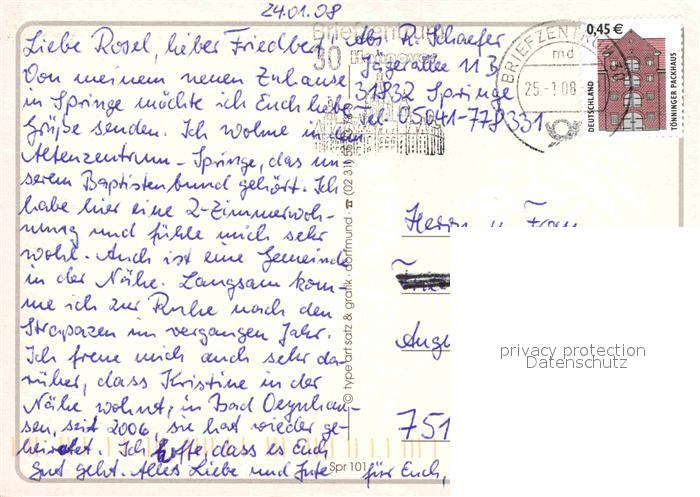 24.01.08
Liebe Rosel, lieber Friedbert,
Von meinem neuen Zuhause
in Springe möchte ich Euch liebe
Grüße senden. Ich wohne in dem
Altenzentrum-Springe, das un-
serem Baptistenbund gehört. Ich
habe hier eine 2-Zimmerwoh-
nung und fühle mich sehr
wohl. Auch ist eine Gemeinde
in der Nähe. Langsam kom-
me ich zur Ruhe nach den
Strapazen im vergangen Jahr.
Ich freue mich auch sehr da-
rüber, dass Kristine in der
Nähe wohnt, in Bad Oeynhau-
sen, seit 2006, sie hat wieder ge-
heiratet. Ich hoffe, dass es Euch
gut geht. Alles Liebe und Gute für Euch,
Abs. R. Schaefer
Jägerallee 11 B
31832 Springe
Tel. 05041-778331
Briefzentrum
30
BRIEFZENTRUM
md
25.-1.08
0,45 €
DEUTSCHLAND
TÖNNINGER PACKHAUS
Herrn u. Frau
Aug
751
© type art satz & grafik · dortmund · ☎ (02 31)
Spr 101
privacy protection
Datenschutz